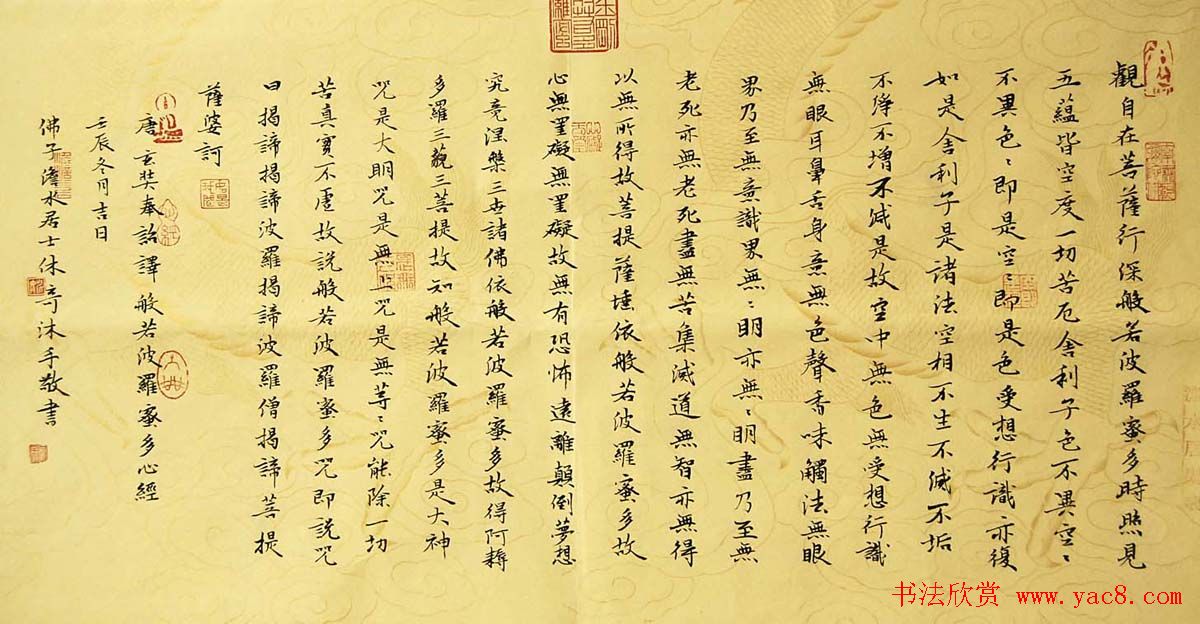 觀自在菩薩行深般若波羅蜜多時照見
五蘊皆空度一切苦厄舍利子色不異空〻
不異色〻即是空〻即是色受想行識亦復
如是舍利子是諸法空相不生不滅不垢
不淨不增不減是故空中無色無受想行識
無眼耳鼻舌身意無色聲香味觸法無眼
界乃至無意識界無〻明亦無〻明盡乃至無
老死亦無老死盡無苦集滅道無智亦無得
以無所得故菩提薩埵依般若波羅蜜多故
心無罣礙無罣礙故無有恐怖遠離顛倒夢想
究竟涅槃三世諸佛依般若波羅蜜多故得阿耨
多羅三藐三菩提故知般若波羅蜜多是大神
咒是大明咒是無上咒是無等〻咒能除一切
苦真實不虛故說般若波羅蜜多咒即說咒
曰揭諦揭諦波羅揭諦波羅僧揭諦菩提
薩婆訶
唐玄奘奉詔譯般若波羅蜜多心經
壬辰冬月吉日
佛子澹水居士休奇沐手敬書
书法欣赏 www.yac8.com